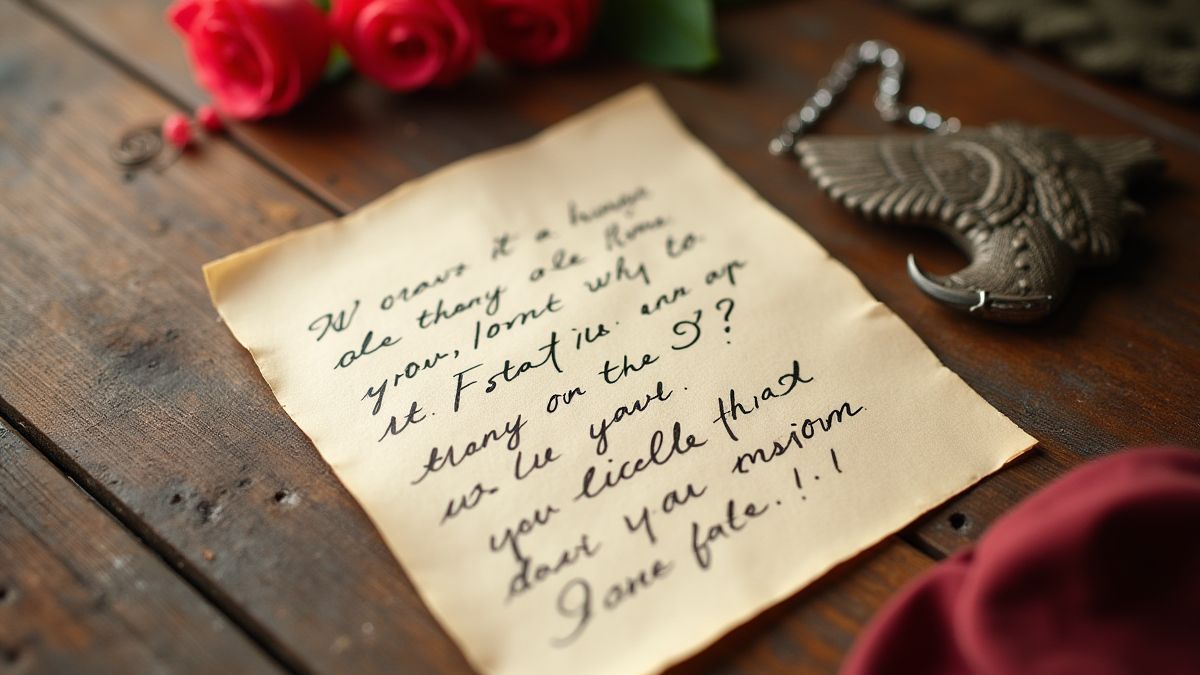 W orawr it a human
ale thany ale Rime
you, lornt why to.
it. Fstat iis. ann ap
trany on the I?
us. Lie yavt.
you licelle thiat
davi yar msiorn.
Jane fate.!.!